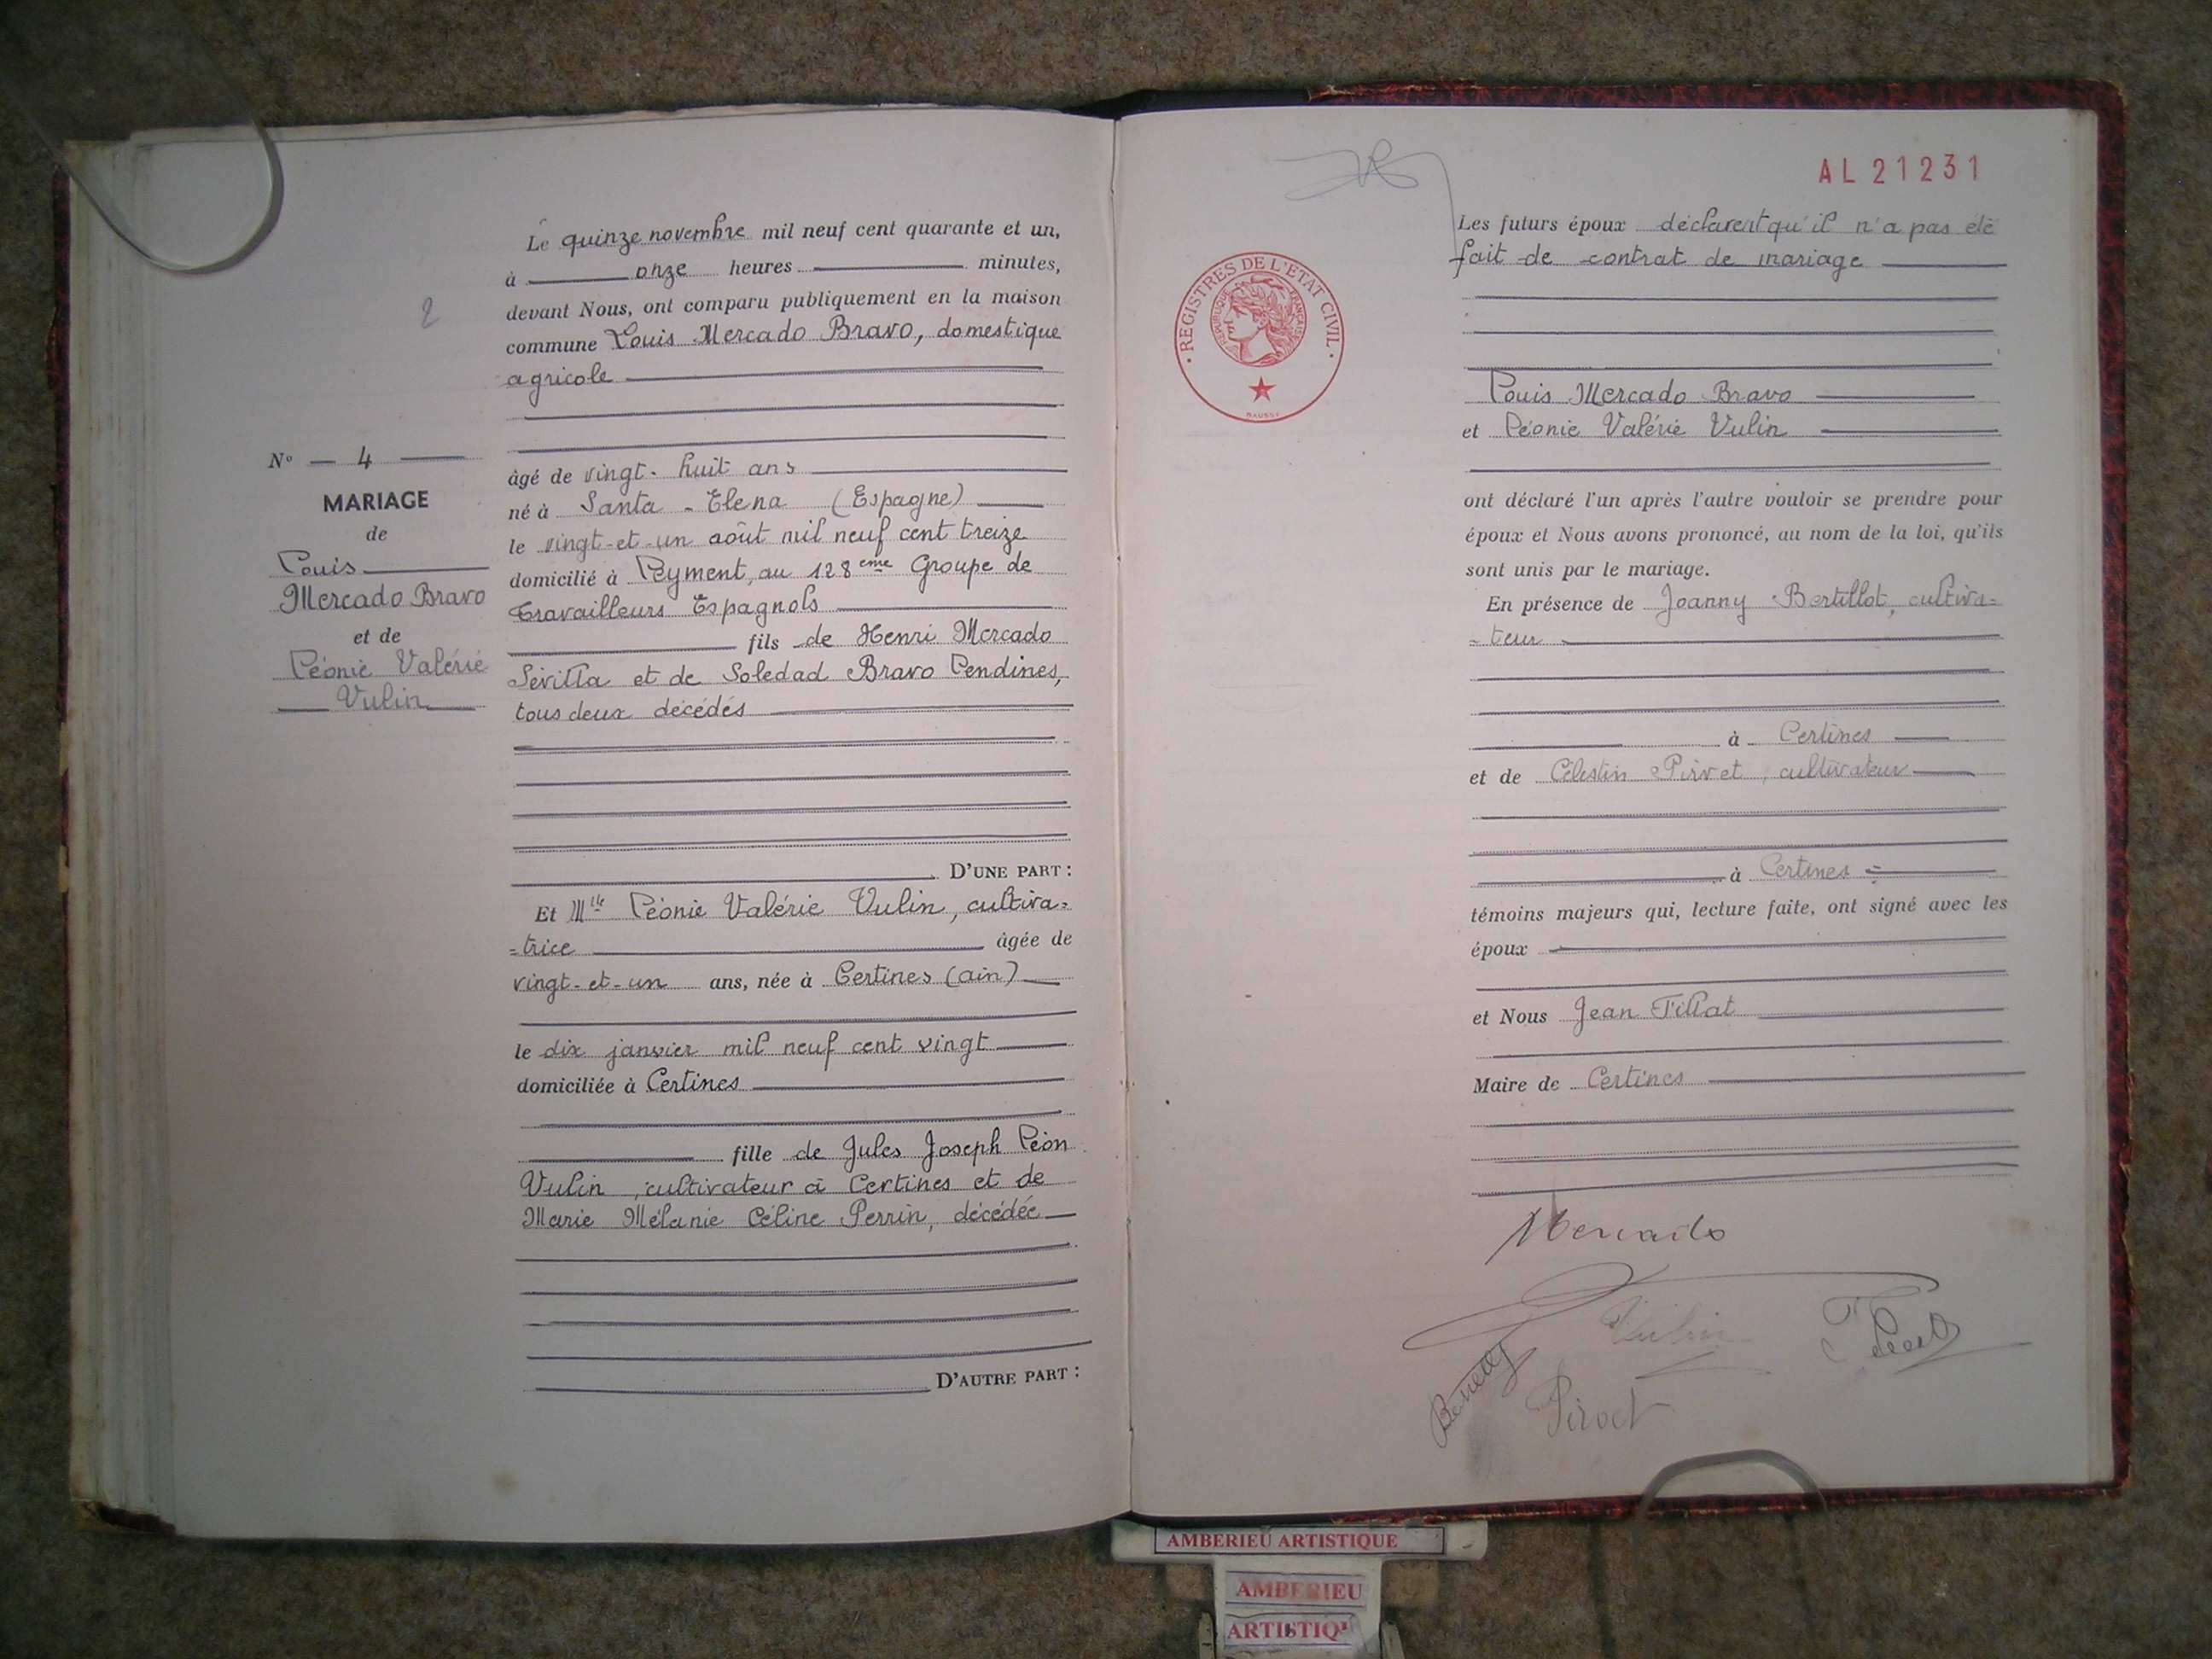 2
N° — 4
MARIAGE
de
Louis
Mercado Bravo
et de
Léonie Valérie
Vulin
Le quinze novembre mil neuf cent quarante et un,
à onze heures minutes,
devant Nous, ont comparu publiquement en la maison
commune Louis Mercado Bravo, domestique
agricole
âgé de vingt-huit ans
né à Santa-Elena (Espagne)
le vingt-et-un août mil neuf cent treize
domicilié à Leyment, au 128eme Groupe de
Travailleurs Espagnols
fils de Henri Mercado
Sévilla et de Soledad Bravo Lendines,
tous deux décédés
D'UNE PART :
Et Mlle Léonie Valérie Vulin, cultiva=
=trice âgée de
vingt-et-un ans, née à Certines (ain)
le dix janvier mil neuf cent vingt
domiciliée à Certines
fille de Jules Joseph Léon
Vulin, cultivateur à Certines et de
Marie Mélanie Céline Perrin, décédée
D'AUTRE PART :
AL 21231
REGISTRES DE L'ETAT CIVIL
REPUBLIQUE FRANÇAISE
Les futurs époux déclarent qu'il n'a pas été
fait de contrat de mariage
Louis Mercado Bravo
et Léonie Valérie Vulin
ont déclaré l'un après l'autre vouloir se prendre pour
époux et Nous avons prononcé, au nom de la loi, qu'ils
sont unis par le mariage.
En présence de Joanny Bertillot, cultiva=
=teur
à Certines
et de Célestin Pirvet, cultivateur
à Certines
témoins majeurs qui, lecture faite, ont signé avec les
époux
et Nous Jean Tillat
Maire de Certines
Mercado
Vulin
Pirvet
AMBERIEU ARTISTIQUE
AMBERIEU
ARTISTIQ